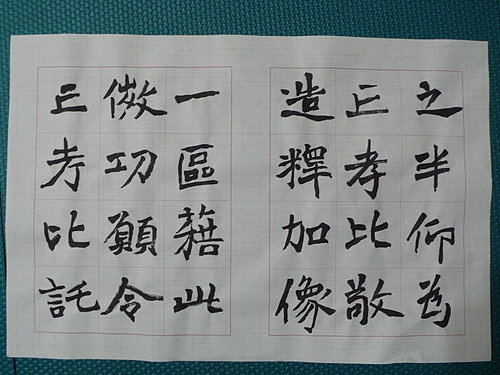 之半仰為
亡孝比敬
造釋加像
一區藉此
微功願令
亡考比託